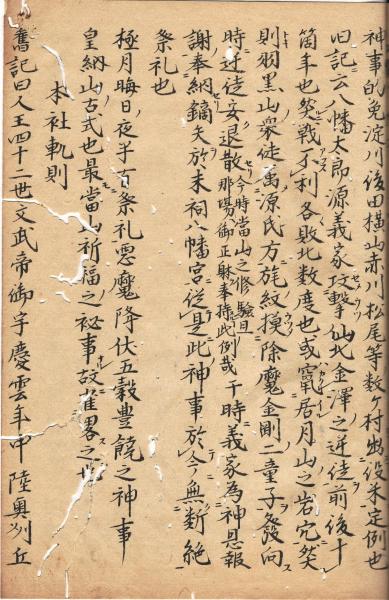 神事的免淀川後田横山赤川松尾等数ヶ村出役米定例也
旧記云八幡太郎源義家攻撃仙北金澤之逆徒前後十
箇年也然戦不利各敗北数度也或窮居月山之岩穴然
則羽黒山衆徒源氏方旄紋摸除魔金剛二童子發向
時逆徒妄退散今時當山之修験且那場御正躰奉揉此例哉干時義家為神恩報
謝奉納鏑矢於末祠八幡宮従是此神事於今無断絶
祭礼也
極月晦日夜半百祭礼悪魔降伏五穀豊饒之神事
皇納山古式也最當山祈福之祕事故雀畧之也
本社軌則
舊記曰人王四十二世文武帝御宇慶雲年中陸奥刕丘